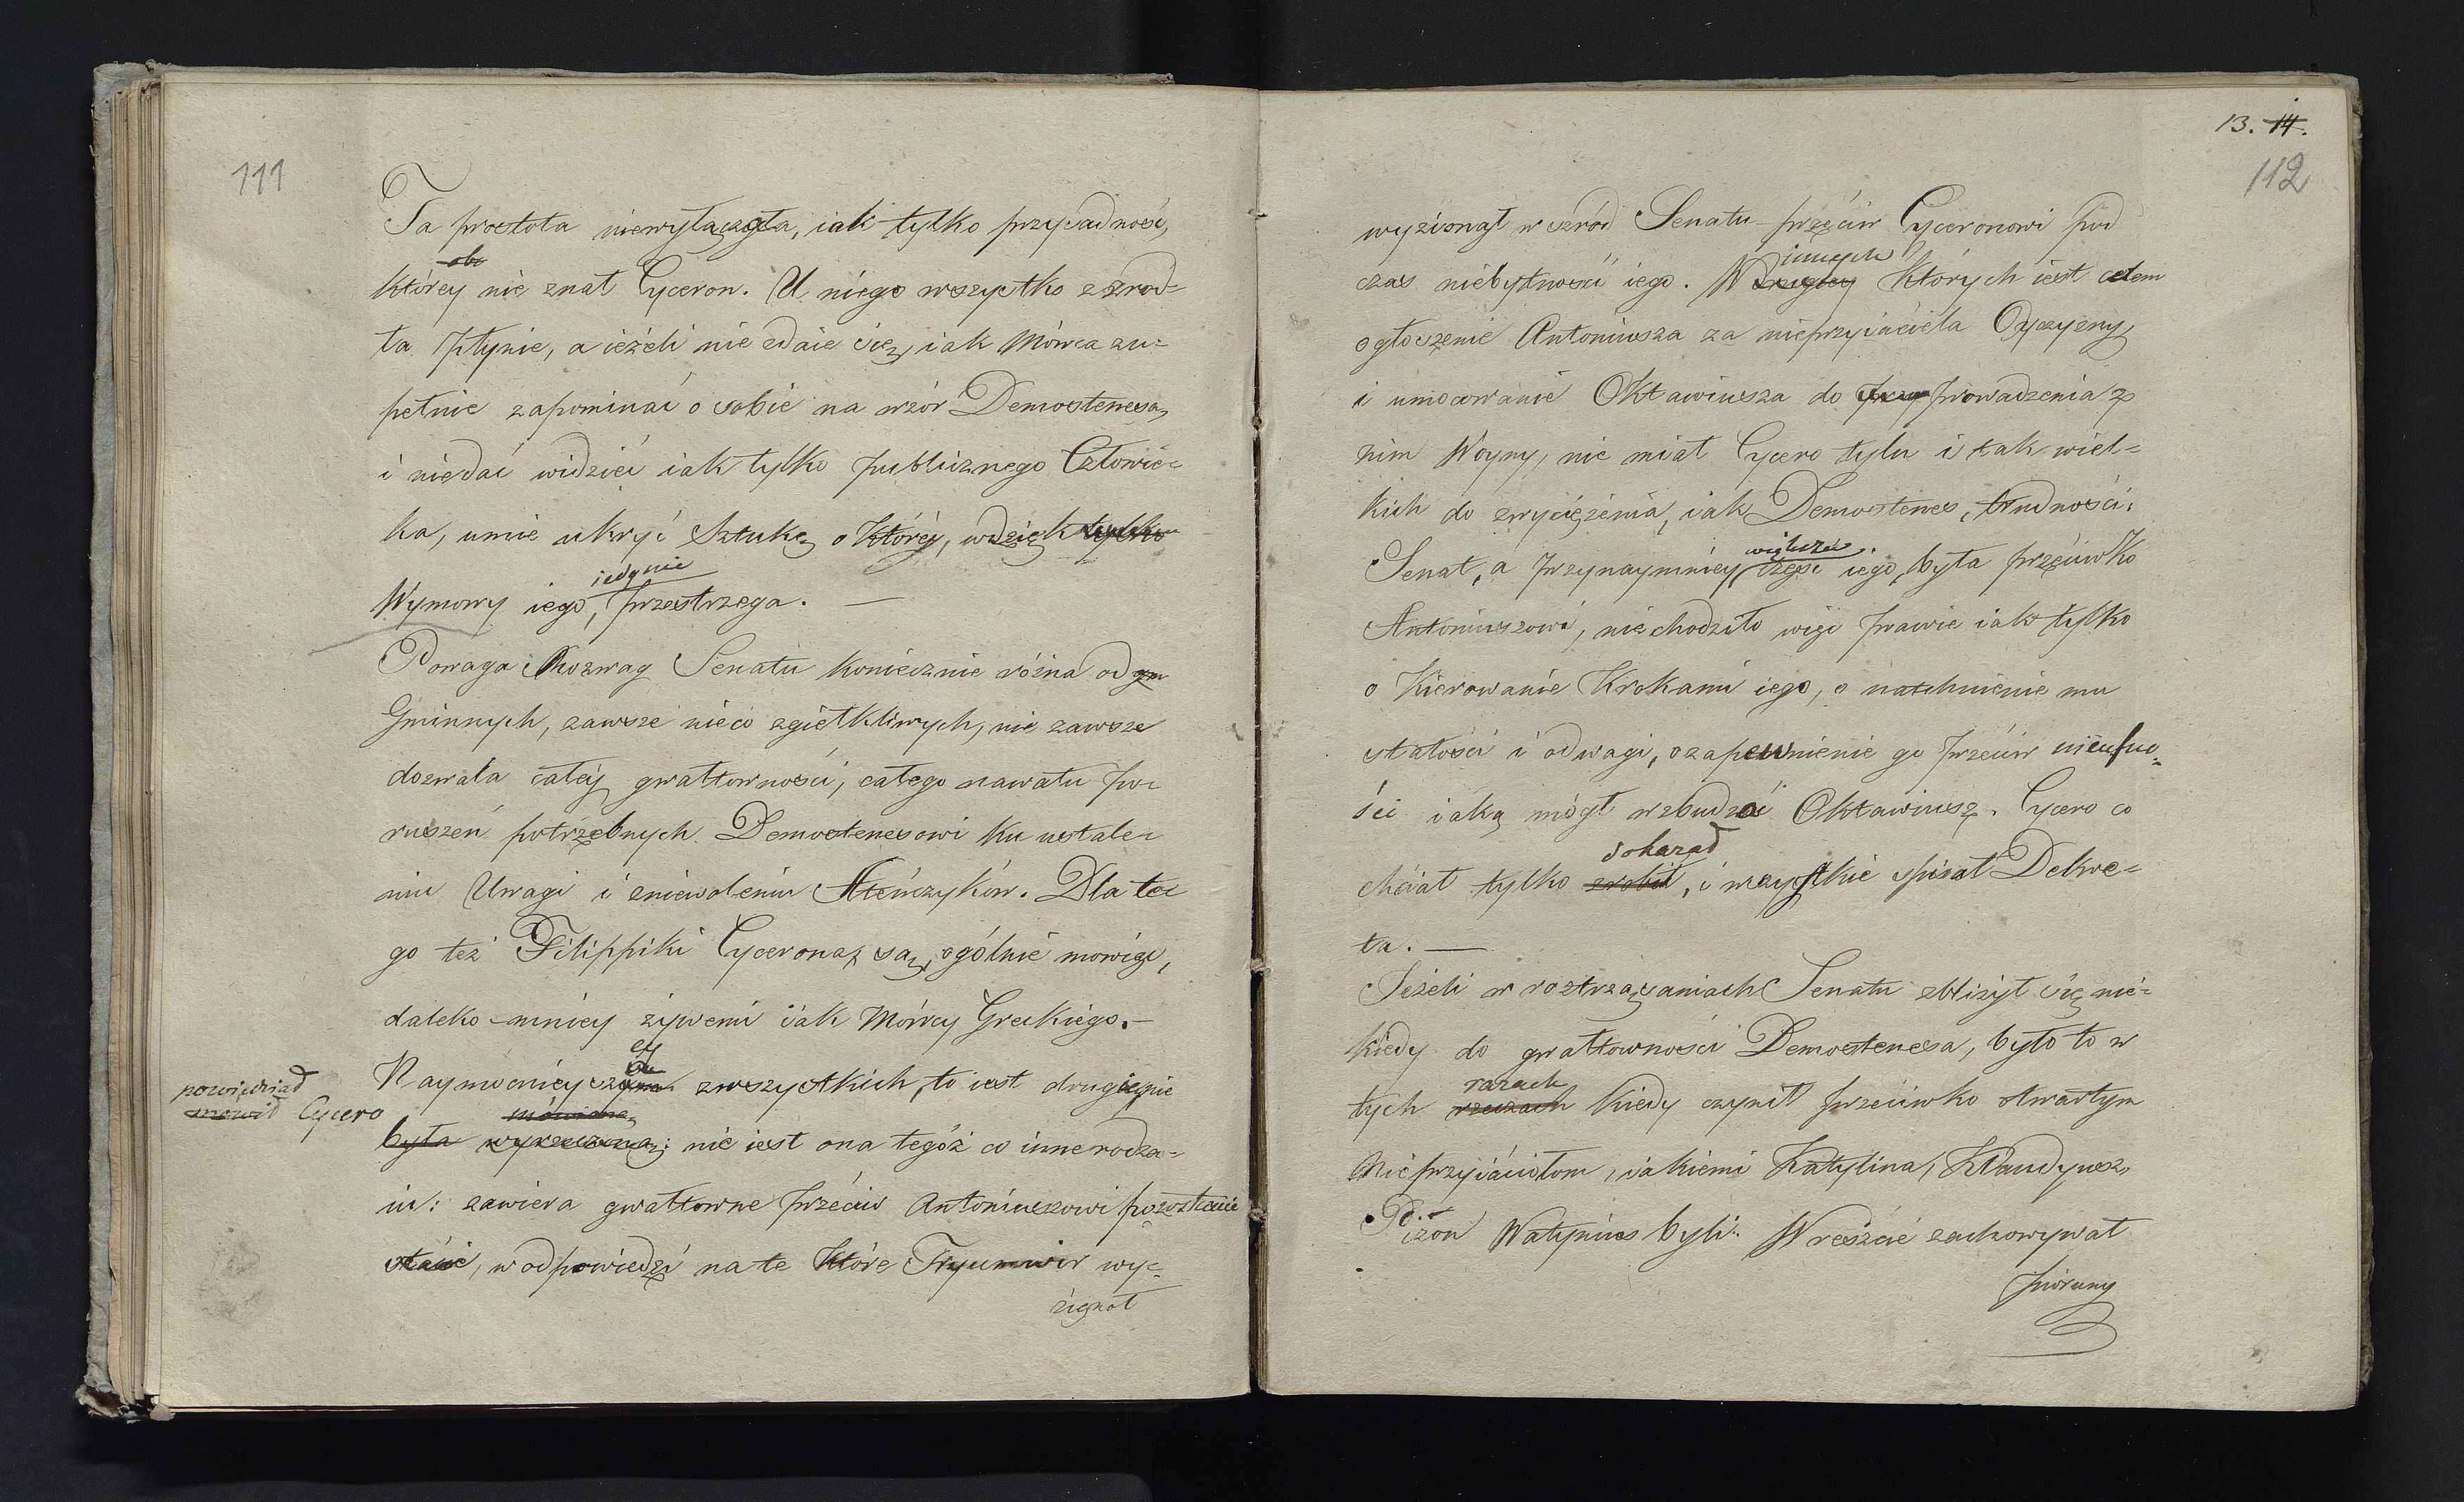 111
Ta prostota niewyłącza, iak tylko przysadność,
obc
którey nie znał Cyceron. U niego wszystko z zrod=
ła płynie, a ieżeli nie zdaie się, iak Mówca zu=
pełnie zapominać o sobie na wzór Demostenesa,
i niedać widzieć iak tylko publicznego Człowie=
ka, umie ukryć Sztukę, o którey, wdzięk tylko
iedynie
Wymowy iego, przestrzega. —
Powaga Rozwag Senatu koniecznie różna od gm
Gminnych, zawsze nieco zgiełkliwych, nie zawsze
dozwala całey gwałtowności, całego nawału po=
ruszeń potrzebnych Demostenesowi ku ustale=
niu Uwagi i zniewoleniu Ateńczyków. Dla te=
go też Filippiki Cycerona, są, ogólnie mowiąc,
daleko mniey żywemi iak Mówcy Greckiego. —
ey
Naymocniey z wszystkich, to iest drugiey nie
powiedział
mowił Cycero
mówiona
była wyrzeczona; nie iest ona tegóż co inne rodza=
iu: zawiera gwałtowne przeciw Antoniuszowi powstanie
stanie, w odpowiedzi na te które Tryumwir wy=
zionął
13. 14.
112
wyzionął w szród Senatu przeciw Cyceronowi pod
czas niebytności iego. W Drugiey których iest celem
innych
ogłoszenie Antoniusza za nieprzyiaciela Oyczyzny,
i umocowanie Oktawiusza do prowadzenia z
nim Woyny, nie miał Cycero tylu i tak wiel=
kich do zwyciężenia, iak Demostenes, trudności:
większa
Senat, a przynaymniey część iego, była przeciwko
Antoniuszowi, nie chodziło więc prawie iak tylko
o kierowanie krokami iego, o natchnienie mu
stałości i odwagi, o zapewnienie go przeciw nieufno=
ści iaką mógł wzbudzać Oktawiusz. Cycero co
dokazał
chciał tylko zrobił, i wszystkie spisał Dekre=
ta. —
Jeżeli w roztrząsaniach Senatu zbliżył się nie=
kiedy do gwałtowności Demostenesa, było to w
razach
tych rzeczach kiedy czynił przeciwko otwartym
Nieprzyiaciołom, iakiemi Katylina, Klaudyusz,
Pizon Watynius byli. Wreszcie zachowywał
pioruny